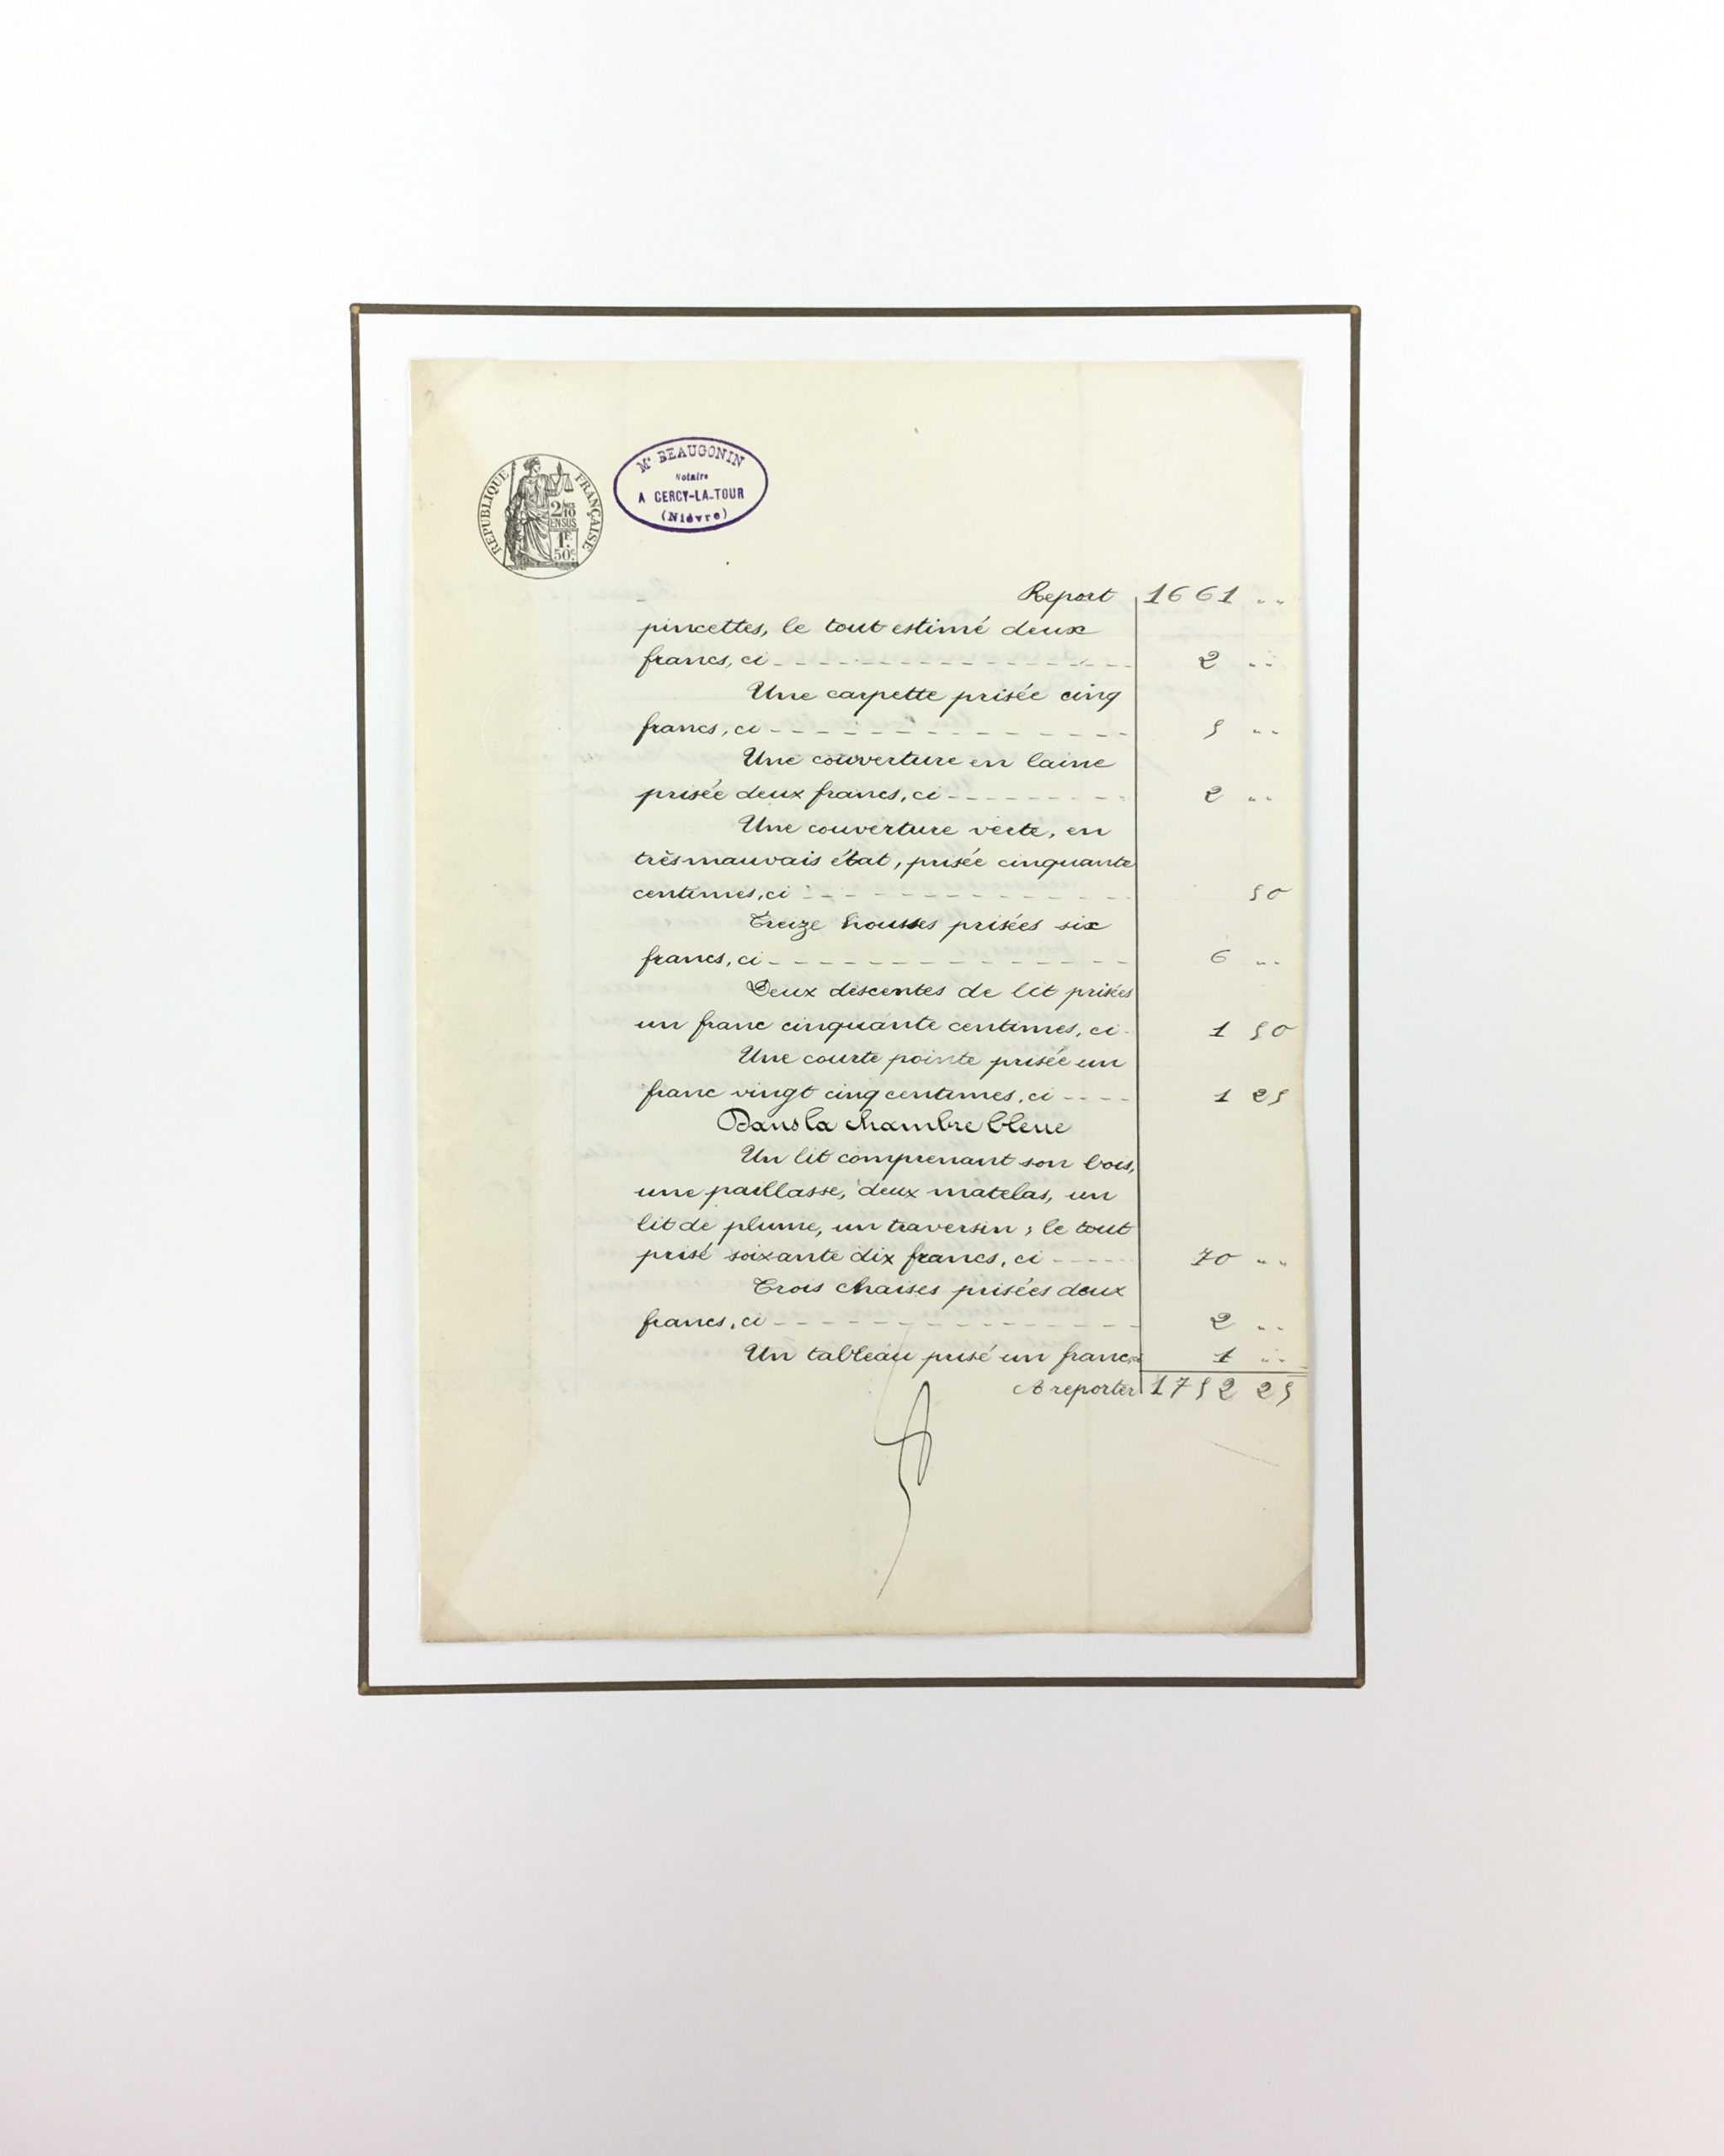 RÉPUBLIQUE FRANÇAISE
2/10
EN SUS
1F
50c
Me BEAUGONIN
Notaire
A CERCY-LA-TOUR
(Nièvre)
Report 1661 ""
pincettes, le tout estimé deux
francs, ci 2 ""
Une carpette prisée cinq
francs, ci 5 ""
Une couverture en laine
prisée deux francs, ci 2 ""
Une couverture verte, en
très mauvais état, prisée cinquante
centimes, ci 50
Treize housses prisées six
francs, ci 6 ""
Deux descentes de lit prisées
un franc cinquante centimes, ci 1 50
Une courte pointe prisée un
franc vingt cinq centimes, ci 1 25
Dans la chambre bleue
Un lit comprenant son bois,
une paillasse, deux matelas, un
lit de plume, un traversin ; le tout
prisé soixante dix francs, ci 70 ""
Trois chaises prisées deux
francs, ci 2 ""
Un tableau prisé un franc, ci 1 ""
A reporter 1752 25